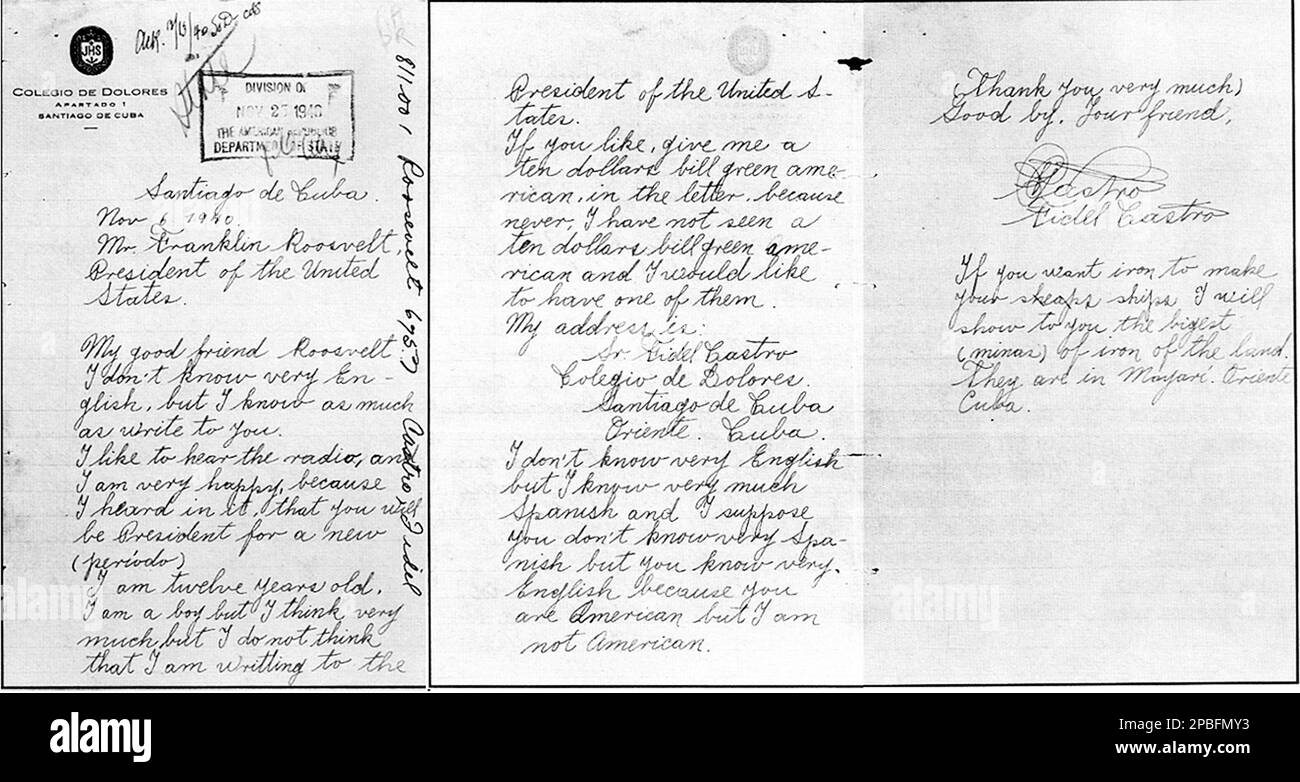 JHS
COLEGIO DE DOLORES
APARTADO 1
SANTIAGO DE CUBA
State
DIVISION OF
NOV 27 1940
THE AMERICAN REPUBLICS
DEPARTMENT OF STATE
811.001 Roosevelt 6957 Castro, Fidel
Santiago de Cuba.
Nov 6 1940.
Mr. Franklin Roosvelt,
President of the United
States.
My good friend Roosvelt
I don't know very En-
glish, but I know as much
as write to you.
I like to hear the radio, and
I am very happy, because
I heard in it, that you will
be President for a new
(período)
I am twelve years old.
I am a boy but I think very
much but I do not think
that I am writting to the
President of the United S-
tates.
If you like, give me a
ten dollars bill green ame-
rican, in the letter, because
never, I have not seen a
ten dollars bill green ame-
rican and I would like
to have one of them.
My address is:
Sr. Fidel Castro
Colegio de Dolores.
Santiago de Cuba
Oriente. Cuba.
I don't know very English
but I know very much
Spanish and I suppose
you don't know very Spa-
nish but you know very
English because you
are American but I am
not American.
(Thank you very much)
Good by. Your friend,
Castro
Fidel Castro
If you want iron to make
your sheaps ships I will
show to you the bigest
(minas) of iron of the land.
They are in Mayarí. Oriente
Cuba.
alamy
alamy
a
a
alamy
Image ID: 2PBFMY3
www.alamy.com